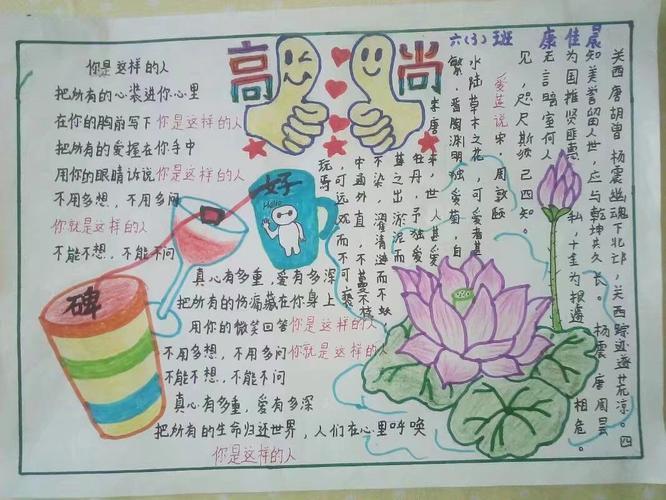 高尚
六(3)班 康佳晨
你是这样的人
把所有的心装进你心里
在你的胸前写下你是这样的人
把所有的爱握在你手中
用你的眼睛诉说你是这样的人
不用多想,不用多问
你就是这样的人
不能不想.,不能不问
真心有多重,爱有多深
把所有的伤痛藏在你身上
用你的微笑回答你是这样的人
不用多想,不用多问你就是这样的人
不能不想.,不能不问
真心有多重,爱有多深
把所有的生命归还世界,人们在心里呼唤
你是这样的人
好
Hello
碑
关西唐胡曾 杨震幽魂下北邙,关西踪迹遂荒凉。四
知美誉留人世,应与乾坤共久长。杨震 唐周昙
为国推贤匪惠私,十金为报遽相危。
无言暗室何人
见,咫尺斯须已四知。
爱莲说 宋 周敦颐
水陆草木之花,可爱者甚
繁。晋陶渊明独爱菊,自
李唐来,世人甚爱
牡丹,予独爱
莲之出淤泥而
不染,濯清涟而不妖,
中通外直,不蔓不枝
,可远观而不可亵
玩焉